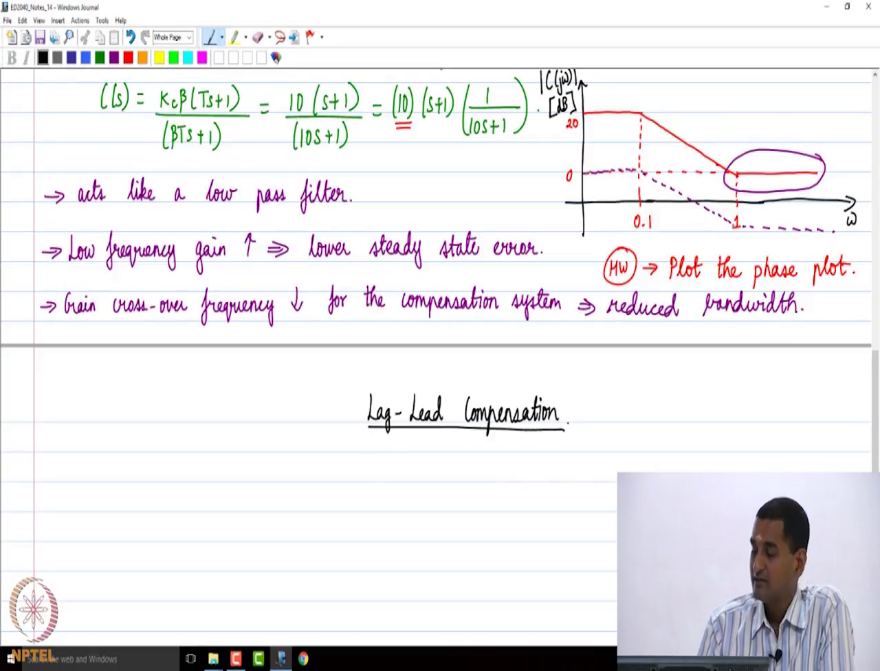 ED2040_Notes_14 - Windows Journal
File Edit View Insert Actions Tools Help
Whole Page
B I
C(s) = Kcβ(Ts+1) / (βTs+1) = 10(s+1) / (10s+1) = (10)(s+1)(1 / 10s+1).
|C(jω)|
[dB]
20
0
0.1 1 ω
→ acts like a low pass filter.
→ Low frequency gain ↑ ⇒ lower steady state error.
HW → Plot the phase plot.
→ Gain cross-over frequency ↓ for the compensation system ⇒ reduced bandwidth.
Lag-Lead Compensation.
NPTEL
the web and Windows